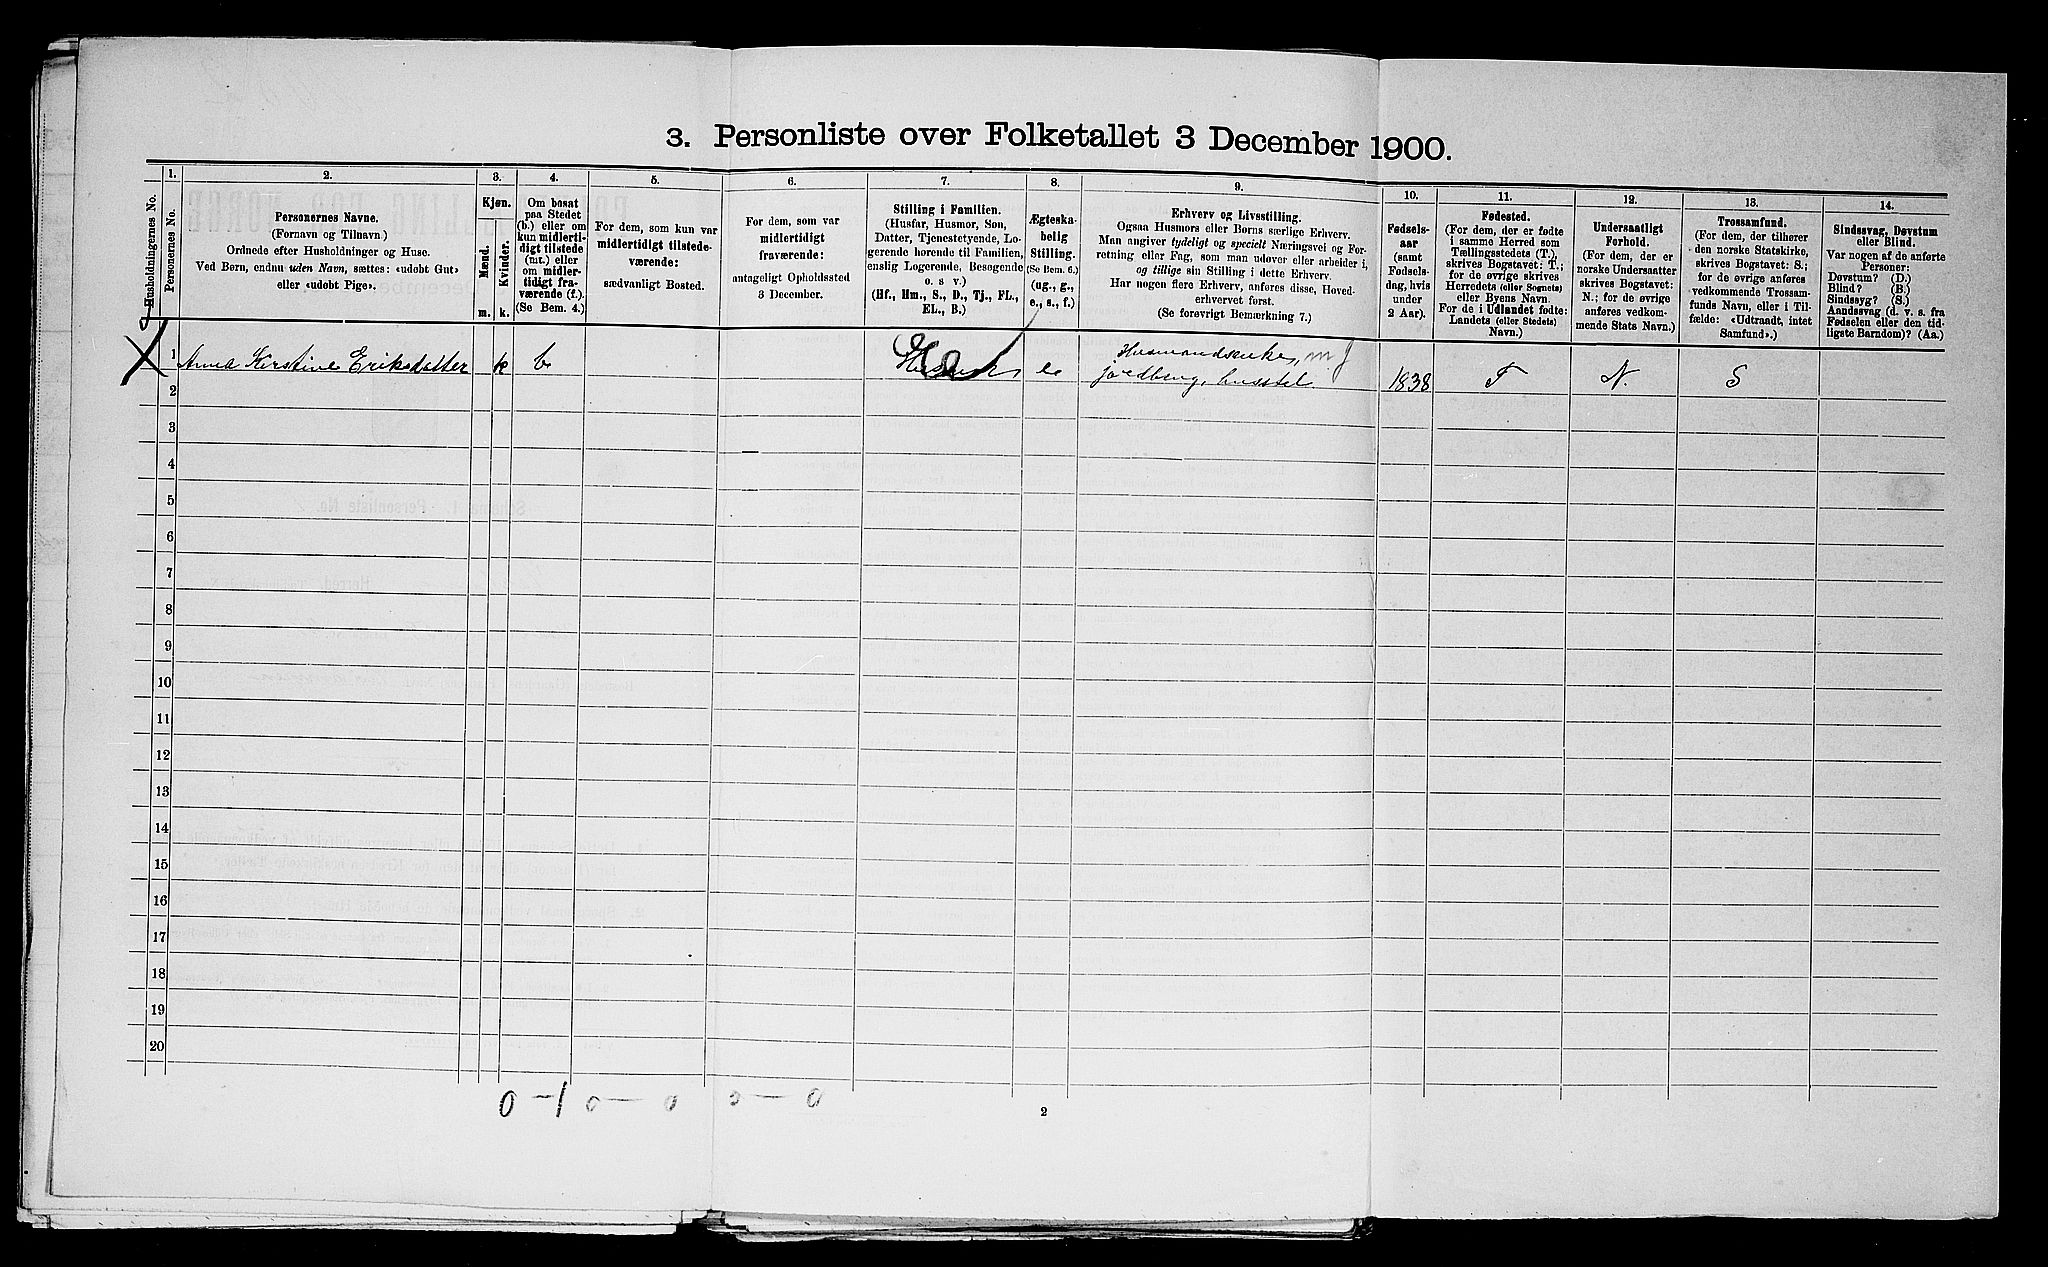 3. Personliste over Folketallet 3 December 1900.
Husholdningernes No.
1.
Personernes No.
2.
Personernes Navne.
(Fornavn og Tilnavn.)
Ordnede efter Husholdninger og Huse.
Ved Børn, endnu uden Navn, sættes: «udøbt Gut»
eller «udøbt Pige».
3.
Kjøn.
Mænd.
Kvinder.
m.
k.
4.
Om bosat
paa Stedet
(b.) eller om
kun midlerti-
digt tilstede
(mt.) eller
om midler-
tidigt fra-
værende (f.).
(Se Bem. 4.)
5.
For dem, som kun var
midlertidigt tilstede-
værende:
sædvanligt Bosted.
6.
For dem, som var
midlertidigt
fraværende:
antageligt Opholdssted
3 December.
7.
Stilling i Familien.
(Husfar, Husmor, Søn,
Datter, Tjenestetyende, Lo-
gerende hørende til Familien,
enslig Logerende, Besøgende
o. s. v.)
(Hf., Hm., S., D., Tj., FL.,
EL., B.)
8.
Ægteska-
belig
Stilling.
(Se Bem. 6.)
(ug., g.,
e., s., f.)
9.
Erhverv og Livsstilling.
Ogsaa Husmors eller Børns særlige Erhverv.
Man angiver tydeligt og specielt Næringsvei og For-
retning eller Fag, som man udøver eller arbeider i,
og tillige sin Stilling i dette Erhverv.
Har nogen flere Erhverv, anføres disse, Hoved-
erhvervet først.
(Se forøvrigt Bemærkning 7.)
10.
Fødsels-
aar
(samt
Fødsels-
dag, hvis
under
2 Aar).
11.
Fødested.
(For dem, der er fødte
i samme Herred som
Tællingsstedets (T.),
skrives Bogstavet: T.;
for de øvrige skrives
Herredets (eller Sognets)
eller Byens Navn.
For de i Udlandet fødte:
Landets (eller Stedets)
Navn.)
12.
Undersaatligt
Forhold.
(For dem, der er
norske Undersaatter
skrives Bogstavet:
N.; for de øvrige
anføres vedkom-
mende Stats Navn.)
13.
Trossamfund.
(For dem, der tilhører
den norske Statskirke,
skrives Bogstavet: S.;
for de øvrige anføres
vedkommende Trossam-
funds Navn, eller i Til-
fælde: «Udtraadt, intet
Samfund».)
14.
Sindssvag, Døvstum
eller Blind.
Var nogen af de anførte
Personer:
Døvstum? (D.)
Blind? (B.)
Sindssyg? (S.)
Aandssvag (d. v. s. fra
Fødselen eller den tid-
ligste Barndom)? (Aa.)
X 1 Anna Kirstine Eriksdatter k b e Husmandsenke, m j
jordbrug, husstel 1838 T N. S
2
3
4
5
6
7
8
9
10
11
12
13
14
15
16
17
18
19
20
0-1 0-0 0-0
2